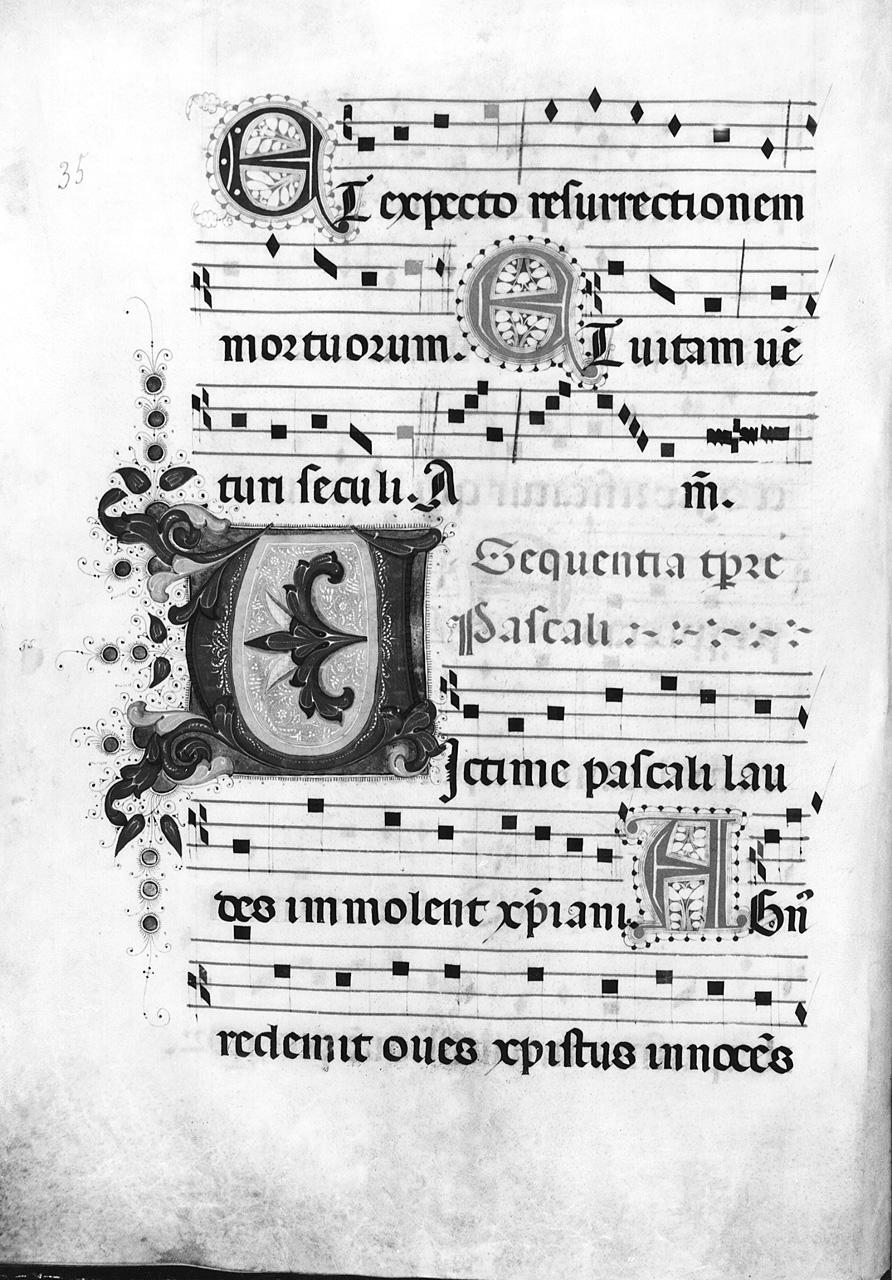 35
ET expecto resurrectionem
mortuorum. ET uitam uē
turi seculi. A m̄.
Sequentia tp̱re
Pascali
UIctime pascali lau
des immolent xp̄iani. AGn̄
redemit oues xpistus innocēs